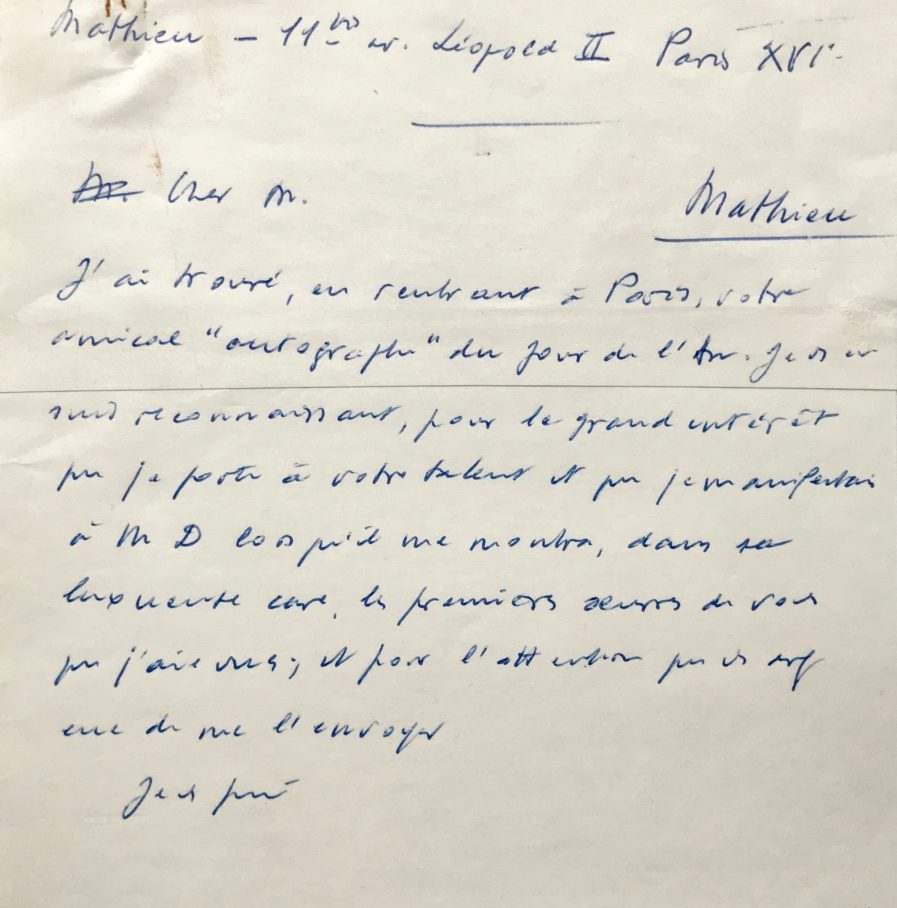 Mathieu – 11bis av. Léopold II Paris XVIe
Cher M.
Mathieu
J'ai trouvé, en rentrant à Paris, votre
amical "autographe" du Jour de l'An. Je vs en
suis reconnaissant, pour le grand intérêt
que je porte à votre talent et que je manifestais
à M D lors qu'il me montra, dans sa
luxueuse cave, les premières œuvres de vous
que j'aie vues; et pour l'attention que vs avez
eue de me l'envoyer
Je vs prie